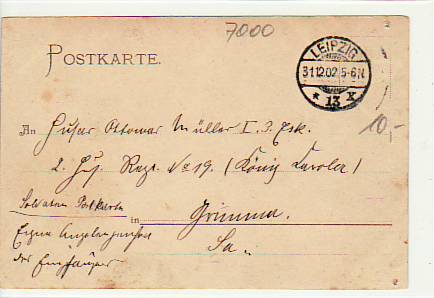 7000
POSTKARTE.
LEIPZIG
31.12.02 5-6N.
* 13 X
10,-
An Husar Ottomar Müller I. 3. Esk.
2. Hus. Regt. No 19. (König Carola)
Soldaten Postkarte
in Grimma.
Eigene Angelegenheit
Sa.
des Empfängers